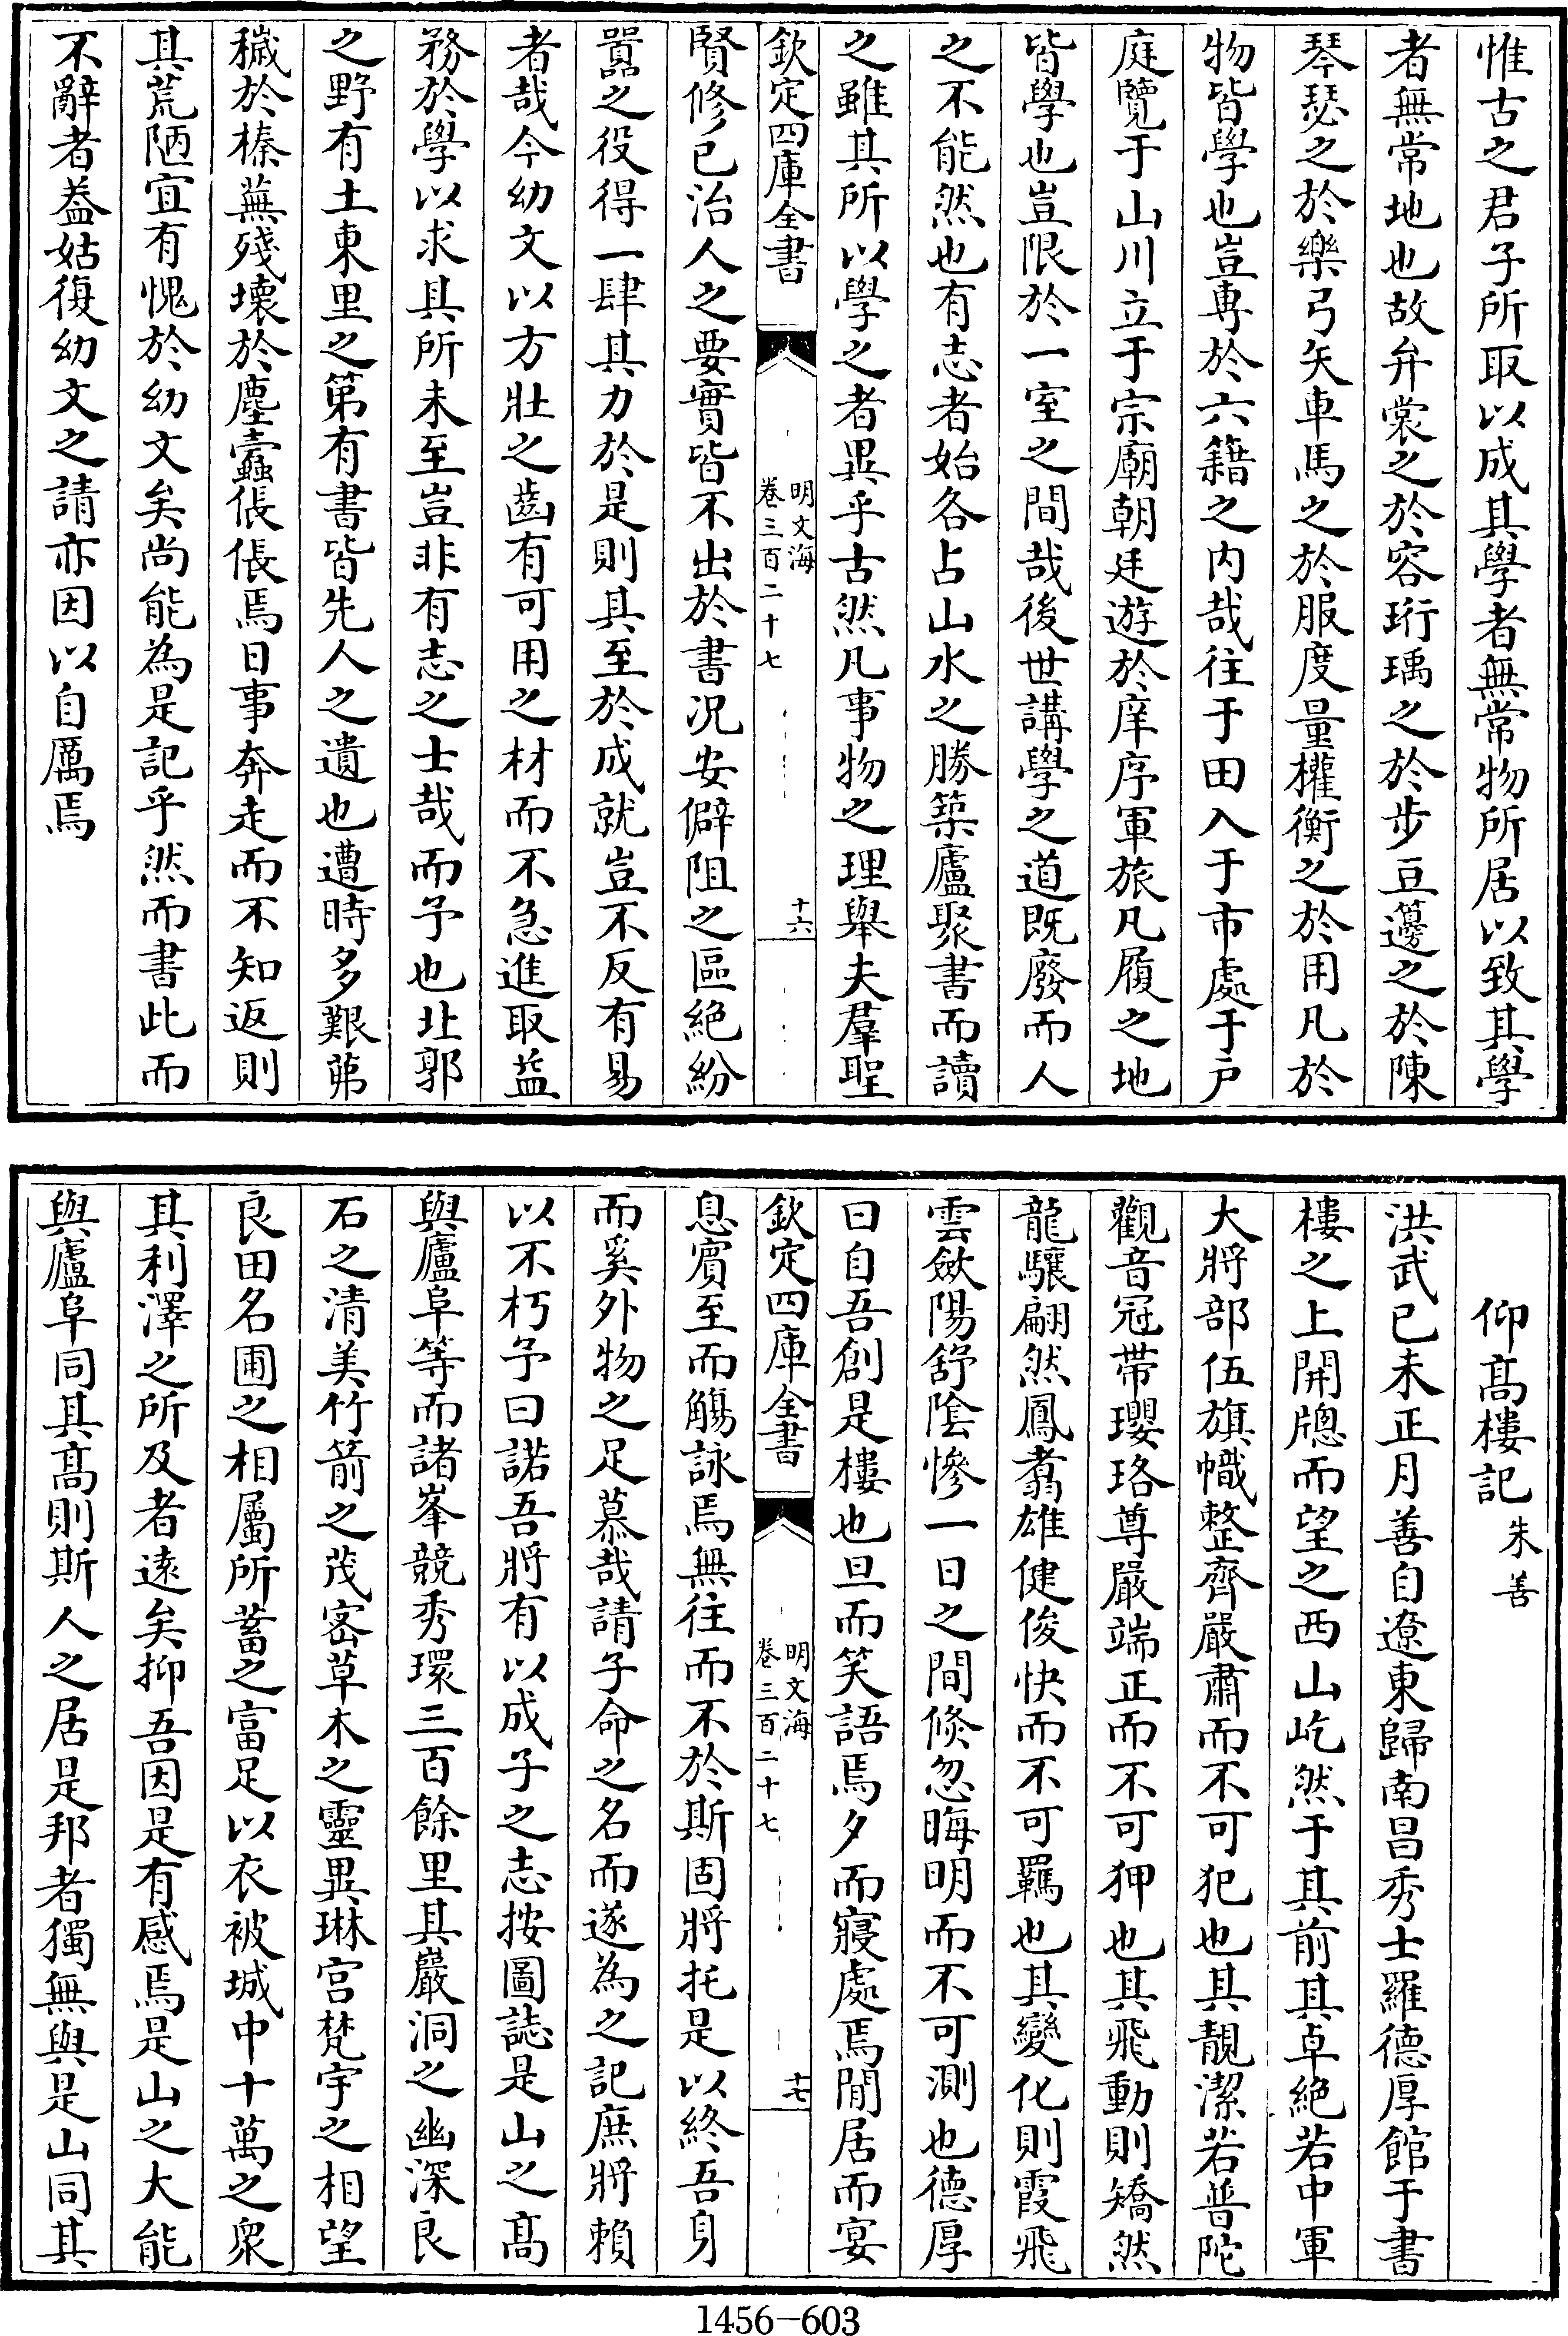 惟古之君子所取以成其學者無常物所居以致其學
者無常地也故弁裳之於容珩瑀之於步豆籩之於陳
琴瑟之於樂弓矢車馬之於服度量權衡之於用凡於
物皆學也豈専於六籍之内哉往于田入于市處于户
庭覽于山川立于宗廟朝廷遊於庠序軍旅凡履之地
皆學也豈限於一室之間哉後世講學之道既廢而人
之不能然也有志者始各占山水之勝築廬聚書而讀
之雖其所以學之者異乎古然凡事物之理舉夫羣聖
欽定四庫全書
明文海
卷三百二十七
十六
賢修已治人之要實皆不出於書况安僻阻之區絶紛
囂之役得一肆其力於是則其至於成就豈不反有易
者哉今幼文以方壯之齒有可用之材而不急進取益
務於學以求其所未至豈非有志之士哉而予也北郭
之野有土東里之第有書皆先人之遺也遭時多艱茀
穢於榛蕪殘壊於塵蠹倀倀焉日事奔走而不知返則
其荒陋宜有愧於幼文矣尚能為是記乎然而書此而
不辭者葢姑復幼文之請亦因以自厲焉
仰髙樓記 朱善
洪武已未正月善自遼東歸南昌秀士羅德厚館于書
樓之上開牕而望之西山屹然于其前其卓絶若中軍
大將部伍旗幟整齊嚴肅而不可犯也其靚潔若普陀
觀音冠帶瓔珞尊嚴端正而不可狎也其飛動則矯然
龍驤翩然鳳翥雄健俊快而不可羈也其變化則霞飛
雲斂陽舒陰慘一日之間倐忽晦明而不可測也德厚
曰自吾創是樓也旦而笑語焉夕而寢處焉閒居而宴
欽定四庫全書
明文海
卷三百二十七
十七
息賓至而觴詠焉無往而不於斯固將托是以終吾身
而奚外物之足慕哉請子命之名而遂為之記庶將賴
以不朽予曰諾吾將有以成子之志按圖誌是山之髙
與廬阜等而諸峯競秀環三百餘里其巖洞之幽深良
石之清美竹箭之茂宻草木之靈異琳宫梵宇之相望
良田名圃之相屬所蓄之富足以衣被城中十萬之衆
其利澤之所及者逺矣抑吾因是有感焉是山之大能
與廬阜同其髙則斯人之居是邦者獨無與是山同其
1456-603